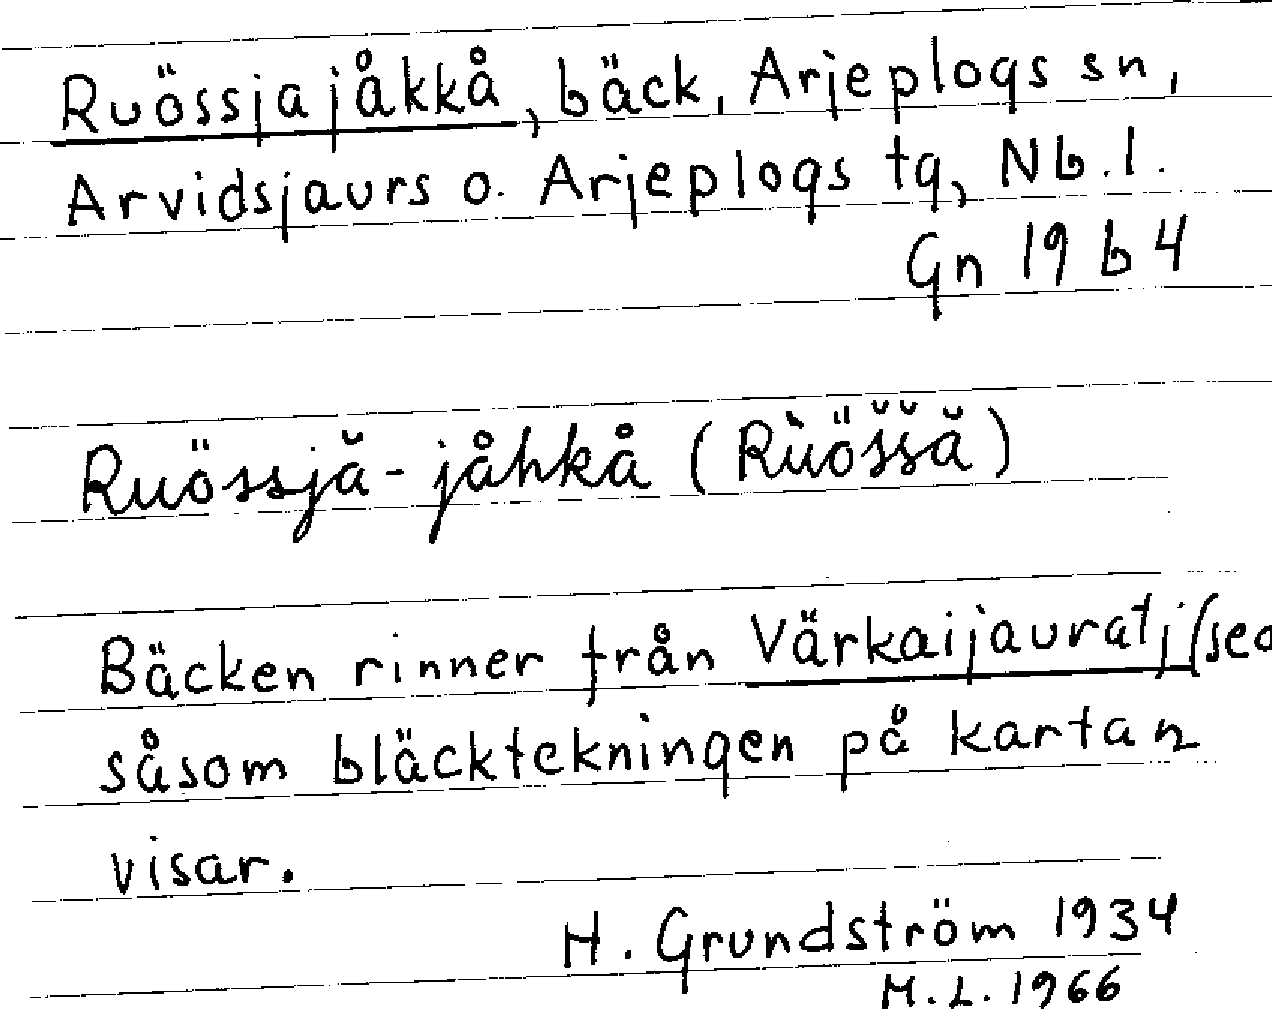 Ruössjajåkkå, bäck, Arjeplogs sn,
Arvidsjaurs o. Arjeplogs tg, Nb.l.
Gn 19 b 4
Ruössjă-jåhkå (Rùöš̌šă)
Bäcken rinner från Värkaijauratj (seo
såsom bläcktekningen på kartan
visar.
H. Grundström 1934
M.L. 1966